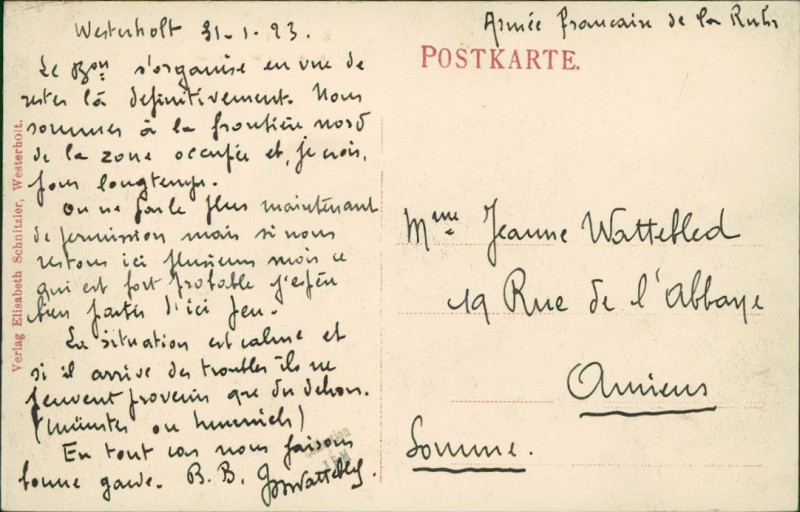 Westerholt 31-1-23.
Le Bon s'organise en vue de
rester là definitivement. Nous
sommes à la frontière nord
de la zone occupée et, je crois,
pour longtemps.
On ne parle plus maintenant
de permission mais si nous
restons ici plusieurs mois ce
qui est fort probable j'espère
bien partir d'ici peu.
La situation est calme et
si il arrive des troubles ils ne
peuvent provenir que du dehors.
(Münster ou
En tout cas nous faisons
bonne garde. B. B. Wattebled.
Verlag Elisabeth Schnitzler, Westerholt.
Armée francaise de la Ruhr
POSTKARTE.
Mme Jeanne Wattebled
19 Rue de l'Abbaye
Amiens
Somme.